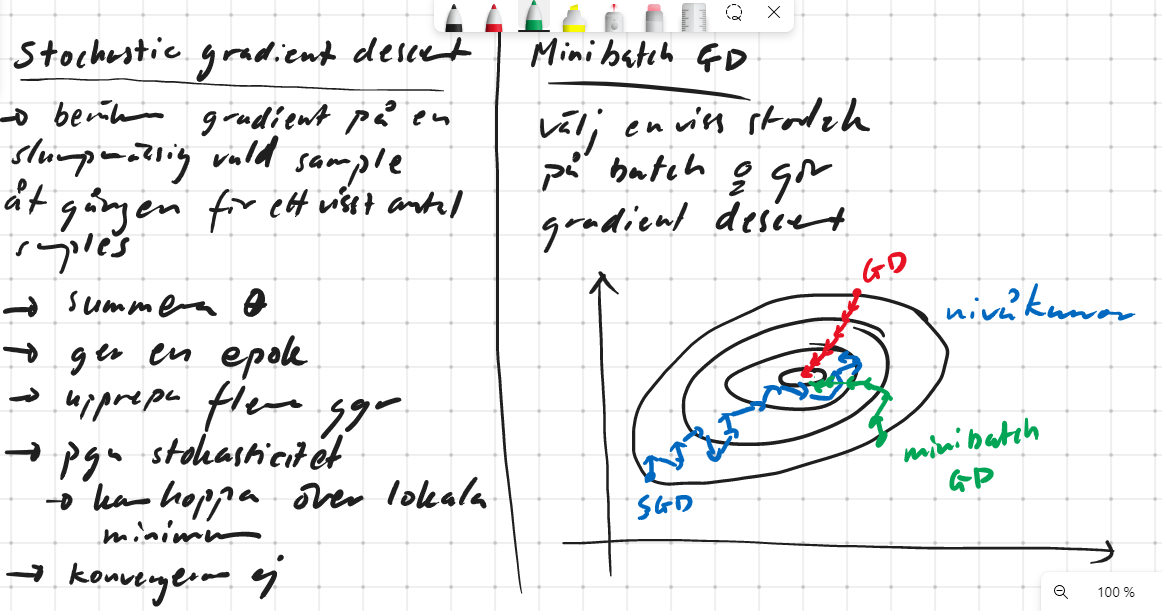 Stochastic gradient descent
→ beräkna gradient på en
slumpmässig vald sample
åt gången för ett visst antal
samples
→ summera θ
→ ger en epok
→ upprepa flera ggr
→ pga stokasticitet
→ kan hoppa över lokala
minimum
→ konvergerar ej
Minibatch GD
välj en viss storlek
på batch & gör
gradient descent
GD
nivåkurvor
minibatch
GD
SGD
100 %